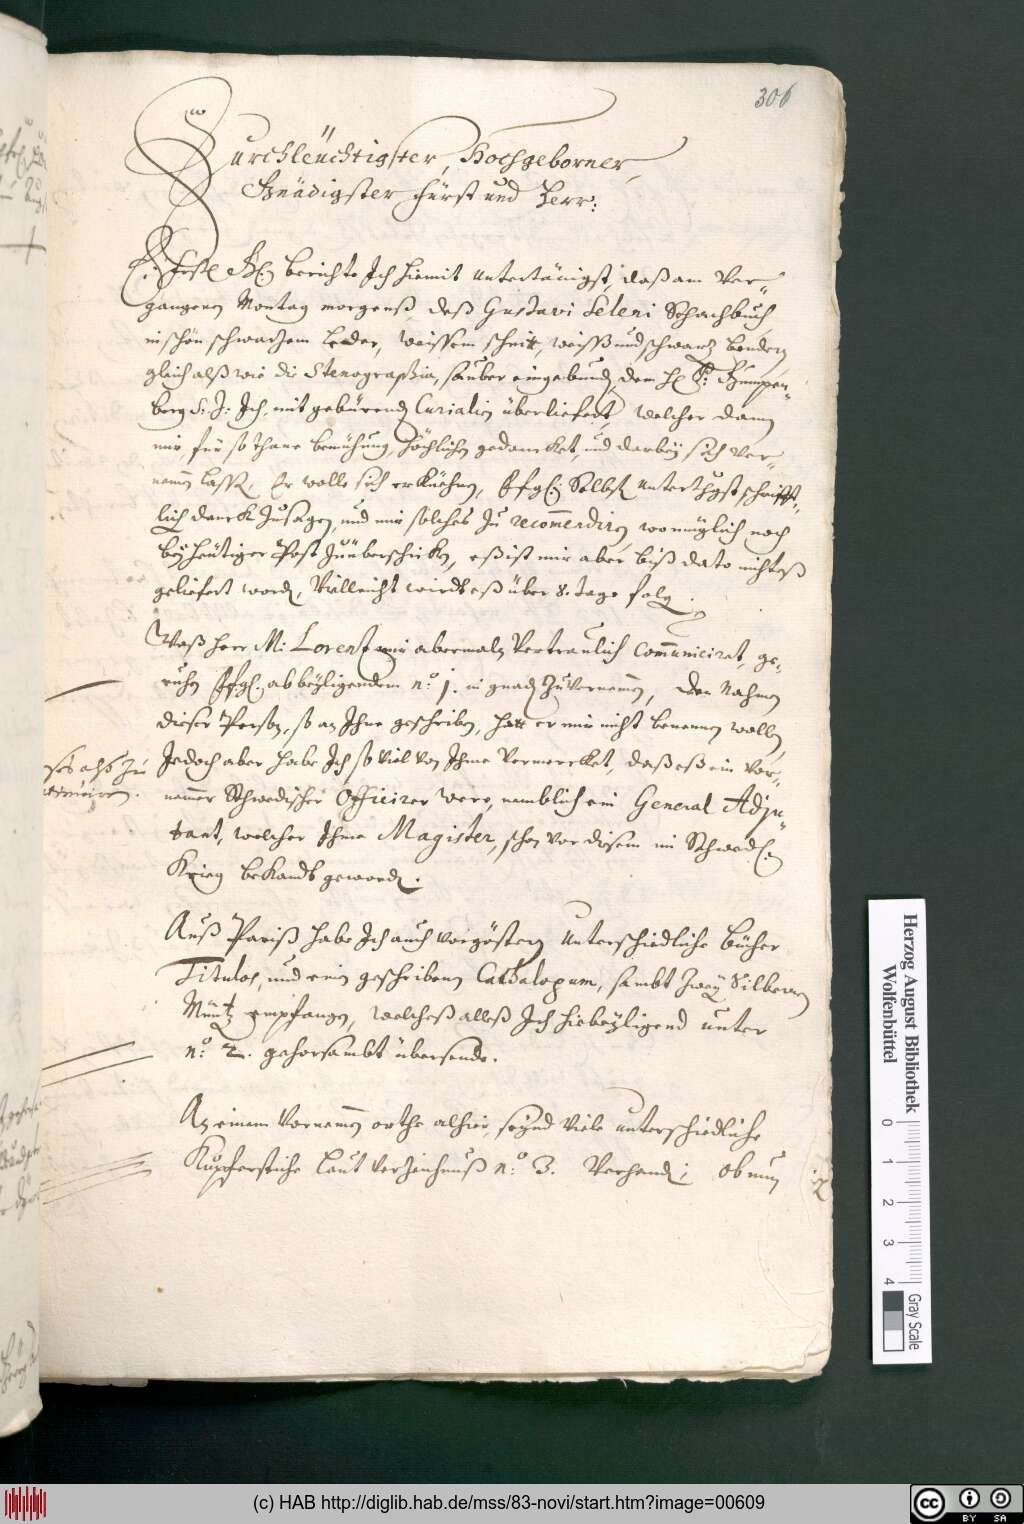 306
Durchleüchtigster, Hochgeborner,
Gnädigster Fürst und Herr:
E: Fürstl. Gn. berichte Ich hiemit untertänigst, daß am ver-
gangenen Montag morgenß, deß Gustavi Seleni Schachbuch
in schön schwartzem Leder, weissem schnitt, weiß und schwartz benderen
gleich alß wie die Stenographia, sauber eingebunden, dem H. P. Gumpen-
berg S. J. Ich, mit gebürenden Curialien überliefert, welcher dann
mir, für so thane bemühung, höchlichen gedancket, und darbey sich ver-
nemmen lassen, Er wolle sich erkuehnen, E. f. g. Selbst unterthgst schrifft-
lich danck zusagen, und mir solches zu recommendiren, womüglich noch
bey heütiger Post zuüberschicken, eß ist mir aber biß dato nichteß
geliefert worden, Villeicht wirdts eß über 8. tage folgen.
Waß Herr M: Lorentz mir abermalen Vertraulich Communiciret, ge-
ruhen E. f. g. ab beyligendem N.o 1. in gnaden zuvernemmen, Den Nahmen
dieser Person, so an Ihne geschriben, hatt er mir nicht benennen wollen,
Jedoch aber habe Ich so viel von Ihme vermercket, daß eß ein vor-
nemmer Schwedischer Officirer were, namblich ein General Adju-
tant, welcher Ihme Magister, schon vor disem im Schweds.
Krieg bekandt geworden.
Auß Pariß habe Ich auch vorgöstern unterschiedliche bücher
Titulos, und ein geschribenen Cathalogum, sambt zwey Silbernen
Müntzen empfangen, welcheß alleß Ich hiebeyligend unter
N.o 2. gehorsambt übersende.
An einem Vornemmen orthe alhier, seynd viele unterschiedliche
Kupferstiche laut Verzeichnuß N.o 3. Verhanden; ob nun
Herzog August Bibliothek
Wolfenbüttel
0 1 2 3 4
Gray Scale
(c) HAB http://diglib.hab.de/mss/83-novi/start.htm?image=00609
cc BY SA